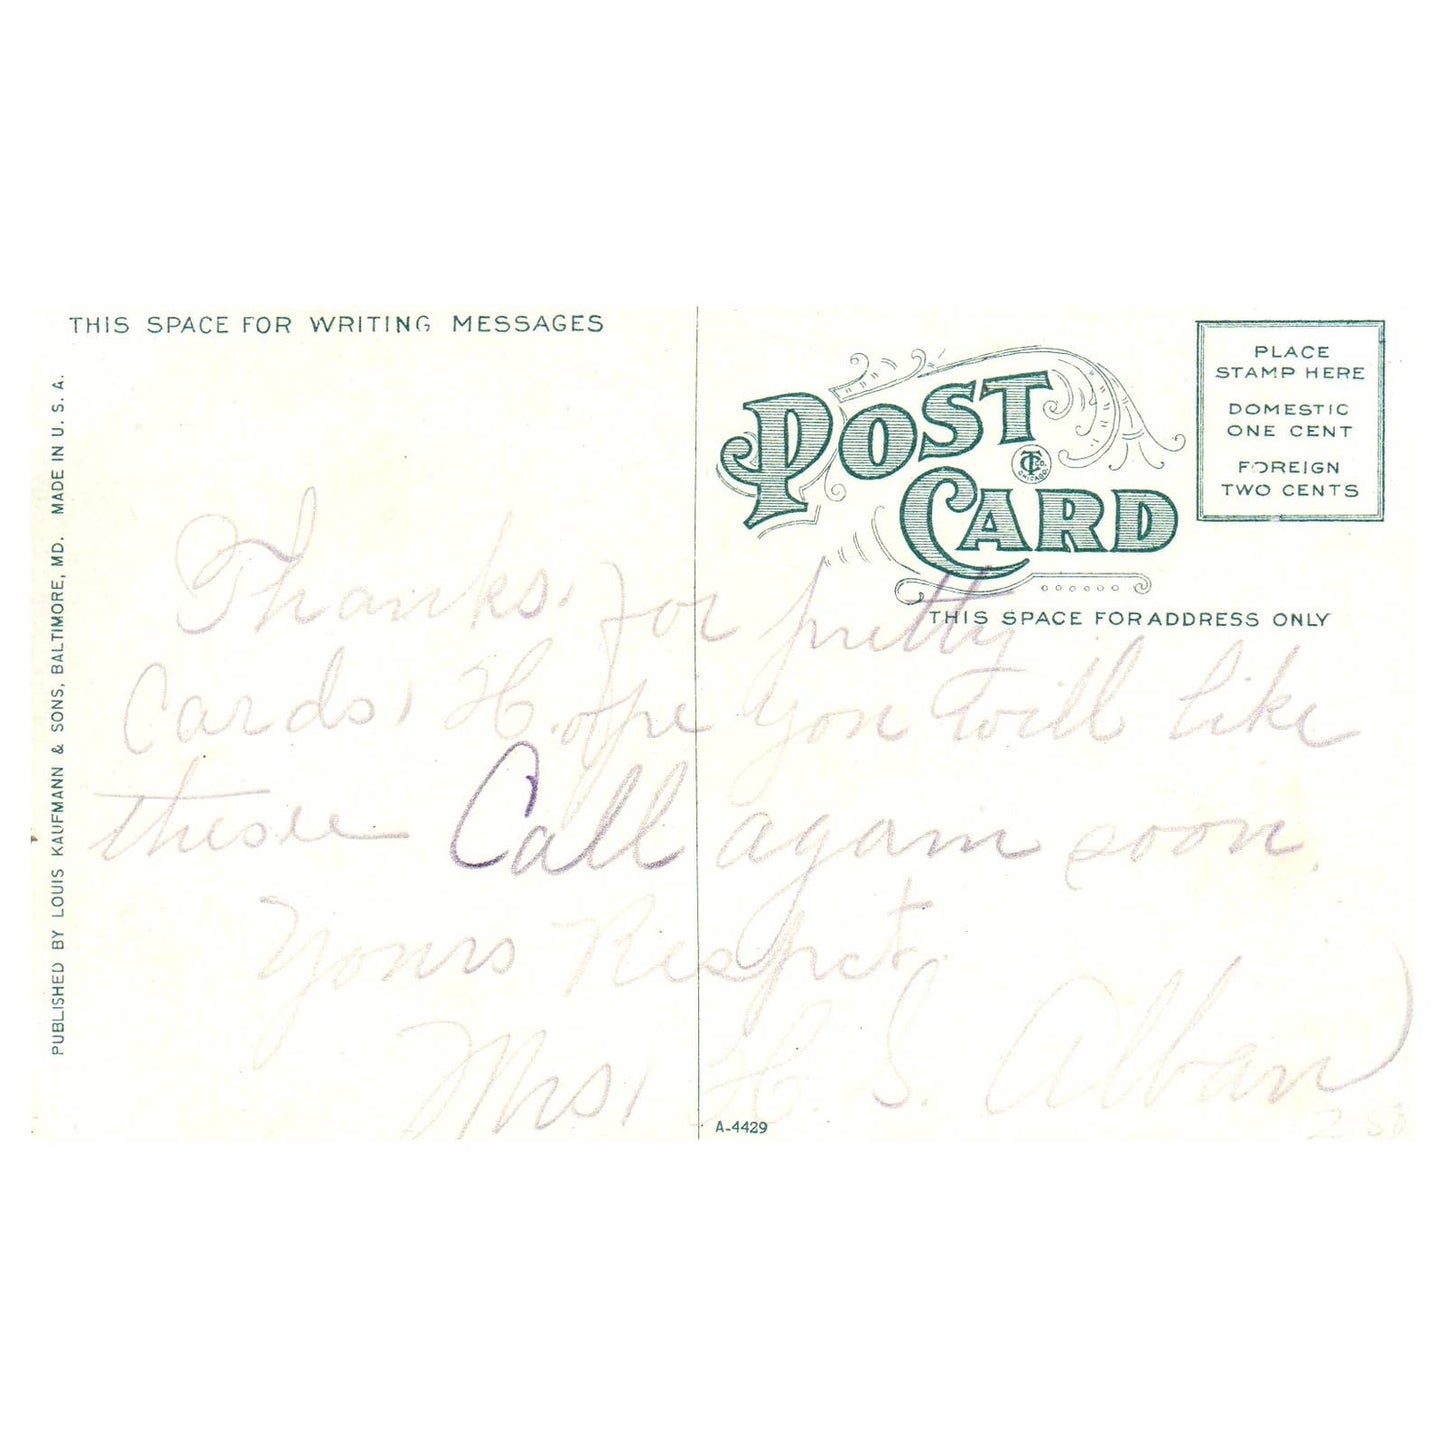 THIS SPACE FOR WRITING MESSAGES
PUBLISHED BY LOUIS KAUFMANN & SONS, BALTIMORE, MD. MADE IN U. S. A.
POST
CARD
CT CO.
CHICAGO
PLACE
STAMP HERE
DOMESTIC
ONE CENT
FOREIGN
TWO CENTS
THIS SPACE FOR ADDRESS ONLY
Thanks. for pretty
Cards, Hope you will like
these Call again soon.
Yours Respct.
Mrs, H. S. Alban
A-4429
2 50